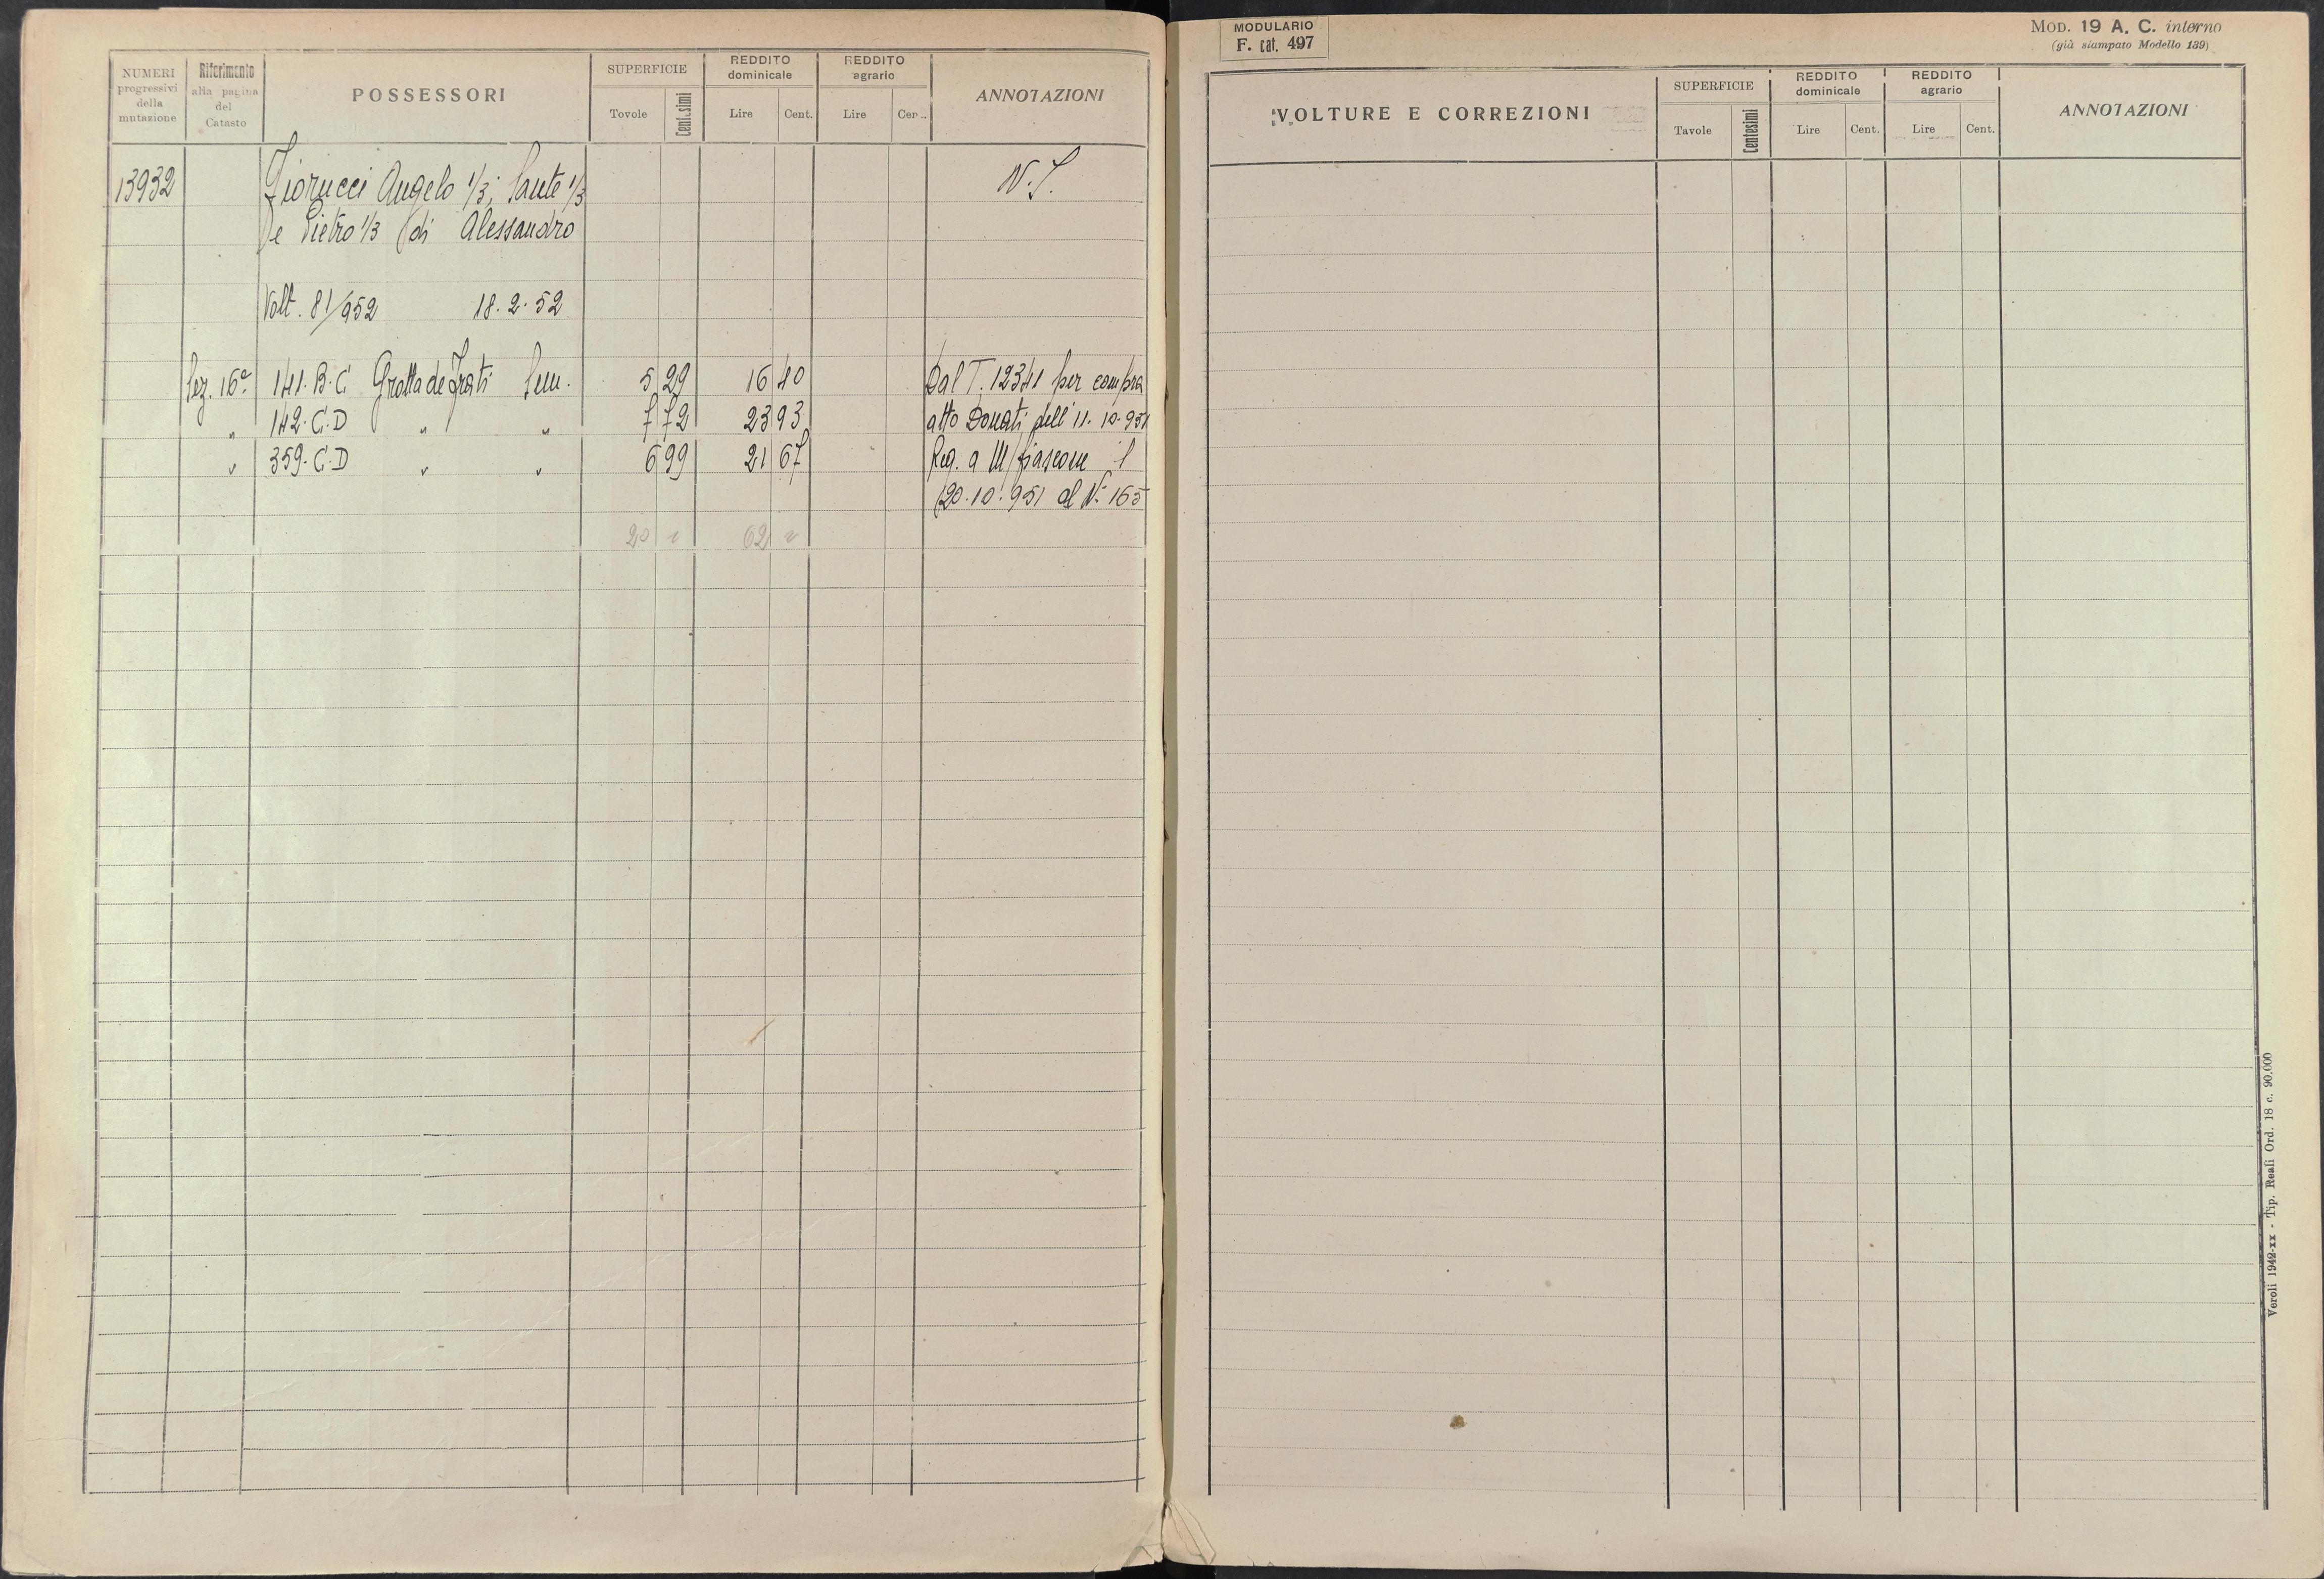 NUMERI progressivi della mutazione
Riferimento alla pagina del Catasto
POSSESSORI
SUPERFICIE
Tavole
Centesimi
REDDITO dominicale
Lire
Cent.
REDDITO agrario
Lire
Cen
ANNOTAZIONI
13932 Fiorucci Angelo 1/3; Sante 1/3 N. S.
e Pietro 1/3 di Alessandro
Volt. 81/952 18.2.52
Sez. 16ª 141. B. C. Grotta de Frati Sem. 5 29 16 40 Dal T. 12341 per compra
" 142. C. D " " 7 72 23 93 atto Donati dell' 11. 10. 951
" 359. C. D " " 6 99 21 67 Reg. a M/fiascone il
20.10.951 al N. 165
20 " 62 "
MODULARIO
F. cat. 497
MOD. 19 A. C. interno
(già stampato Modello 139)
VOLTURE E CORREZIONI
SUPERFICIE
Tavole
Centesimi
REDDITO dominicale
Lire
Cent.
REDDITO agrario
Lire
Cent.
ANNOTAZIONI
Veroli 1942-XX - Tip. Reali Ord. 18 c. 90.000